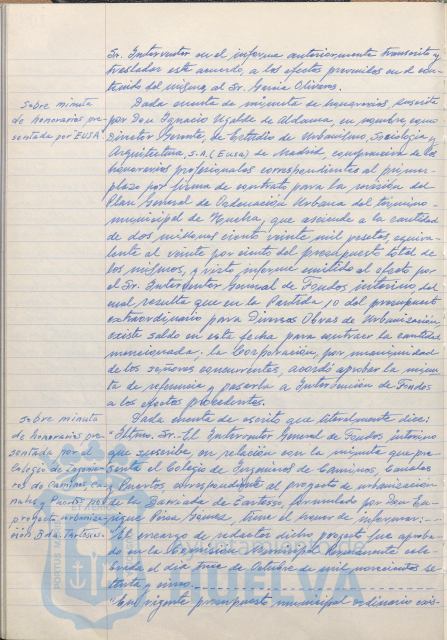 Sr. Interventor en el informe anteriormente transcrito y
trasladar este acuerdo, a los efectos prevenidos en el con-
tenido del mismo, al Sr. García Olivares.
Sobre minuta
de honorarios pre-
sentada por EUSA
Dada cuenta de minuta de honorarios suscrita
por Don Ignacio de Aldama, en nombre, como
Director Gerente, de Estudio de Urbanismo, Sociología y
Arquitectura, S.A. (Eusa) de Madrid, comprensiva de los
honorarios profesionales correspondientes al primer
plazo por firma de contrato para la revisión del
Plan General de Ordenación Urbana del término
municipal de Huelva, que asciende a la cantidad
de dos millones ciento veinte mil pesetas, equiva-
lente al veinte por ciento del presupuesto total de
los mismos, y visto informe emitido al efecto por
el Sr. Interventor General de Fondos interino, del
cual resulta que en la Partida 10 del presupuesto
extraordinario para Diversas Obras de Urbanización
existe saldo en esta fecha para contraer la cantidad
mencionada; la Corporación, por unanimidad
de los señores concurrentes, acordó aprobar la minu-
ta de referencia y pasarla a Intervención de Fondos
a los efectos procedentes.
Sobre minuta
de honorarios pre-
sentada por el
Colegio de Ingenie-
ros de Caminos, Ca-
nales y Puertos por
proyecto urbaniza-
ción Bda. Tartessos.
Dada cuenta de escrito que literalmente dice:
"Iltmo. Sr.- El Interventor General de Fondos interino
que suscribe, en relación con la minuta que pre-
senta el Colegio de Ingenieros de Caminos, Canales
y Puertos correspondiente al proyecto de urbanización
de la Barriada de Tartessos, formulado por Don En-
rique Pérez Gómez, tiene el honor de informar:-
El encargo de redactar dicho proyecto fue aproba-
do en la Comisión Municipal Permanente cele-
brada el día trece de Octubre de mil novecientos se-
tenta y cinco.
"En vigente presupuesto municipal ordinario exis-
HUELVA